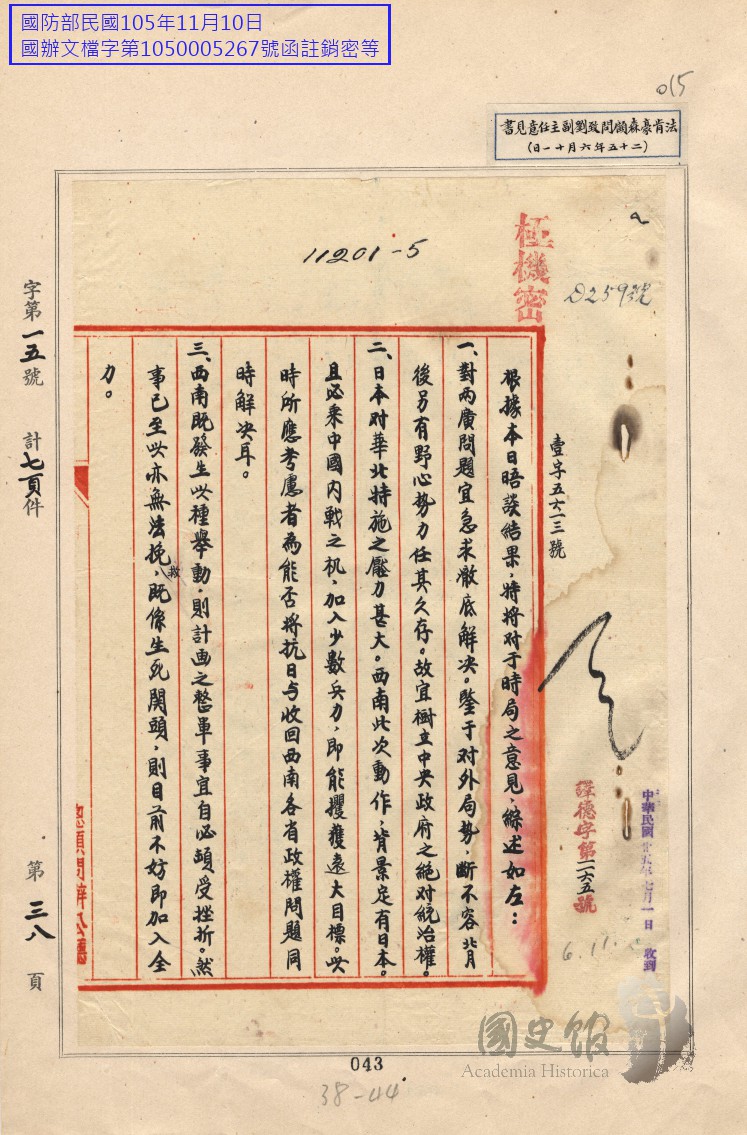 國防部民國105年11月10日
國辦文檔字第1050005267號函註銷密等
015
法肯豪森顧問致劉副主任意見書
(二十五年六月十一日)
11201-5
極機密
D259號
壹字五六一三號
根據本日晤談結果,特將对于時局之意見,綜述如左:
一、對两廣問題宜急求澈底解决。鑒于对外局勢,斷不容背
後另有野心勢力任其久存。故宜樹立中央政府之絕对統治權。
二、日本对華北特施之壓力甚大。西南此次動作,背景定有日本。
且必乘中國内戰之机,加入少數兵力,即能攫獲遠大目標。此
時所應考慮者為能否將抗日与收回西南各省政權問題同
時解决耳。
三、西南既發生此種舉動,則計画之整軍事宜自必頓受挫折。然
事已至此亦無法挽救,既係生死関頭,則目前不妨即加入全
力。
譯德字第二六五號
中華民國廿五年七月一日 收到
6.11.
總顧問辦公廳
字第一五號 計七頁件 第三八頁
043
38-44
國史館
Academia Historica